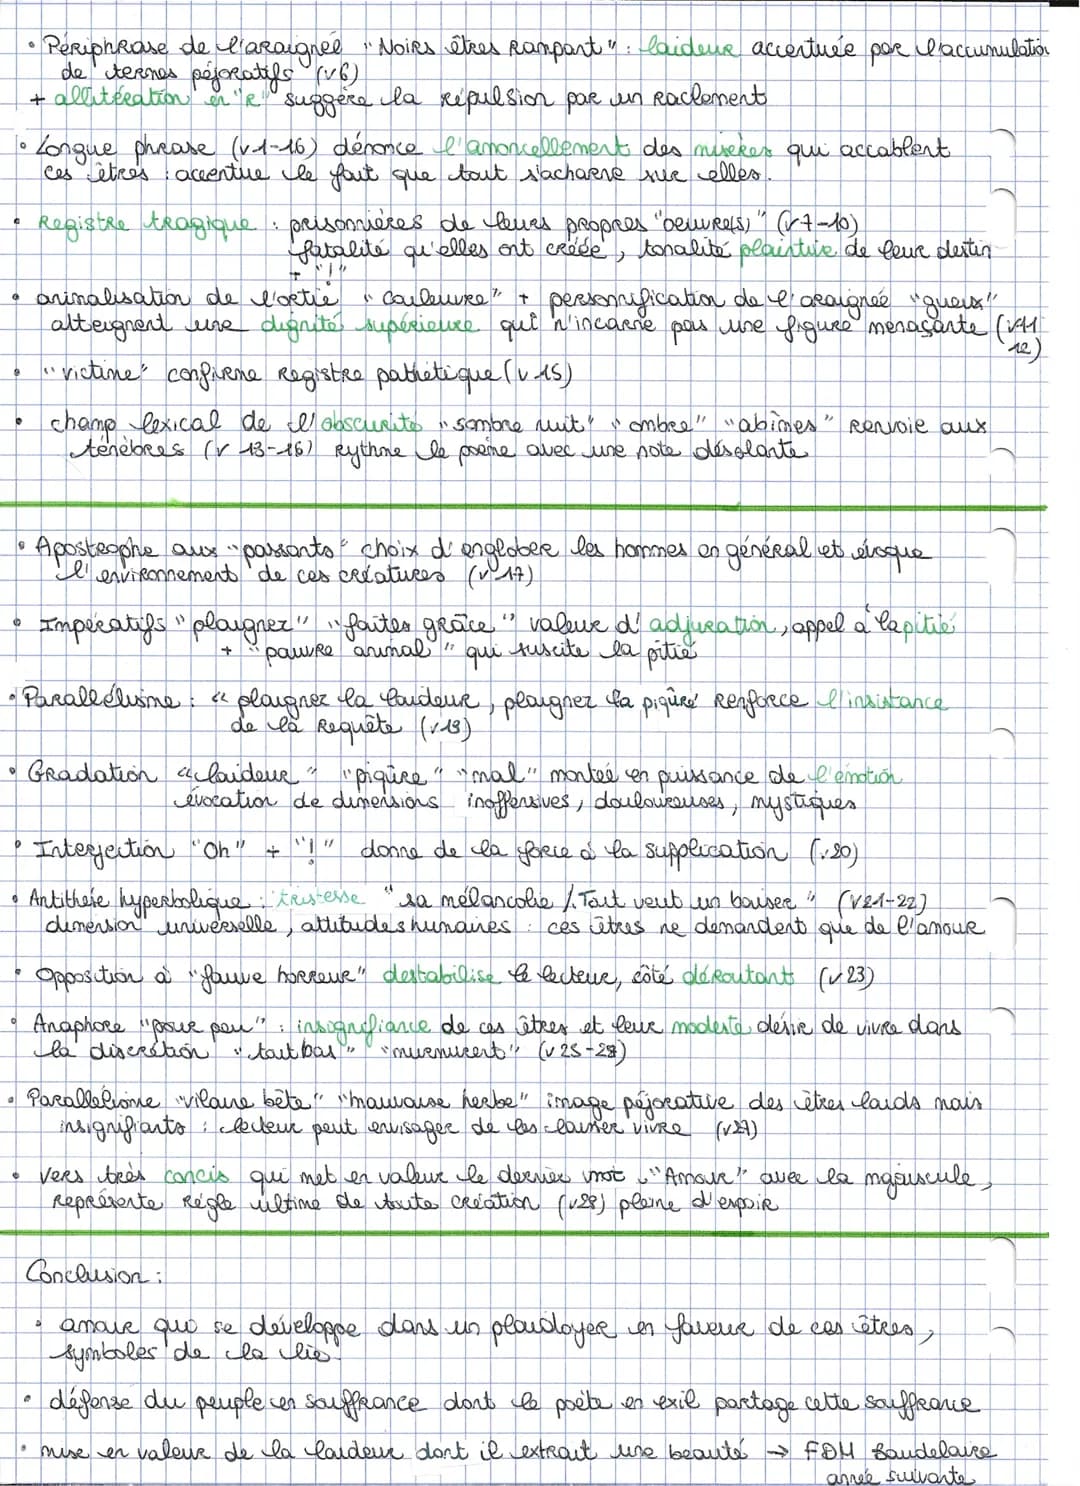 • Périphrase de l'araignée "Noirs êtres Rampant" : laideur accentuée par l'accumulation
de termes péjoratifs (v6)
+ allitération en "R" suggère la répulsion par un Raclement
• Longue phrase (v1-16) dénonce l'amoncellement des misères qui accablent
ces êtres : accentue le fait que tout s'acharne sur elles.
• Registre tragique : prisonnières de leurs propres "oeuvre(s)" (v7-10)
fatalité qu'elles ont créée, tonalité plaintive de leur destin
+ "!"
• animalisation de l'ortie "couleuvre" + personnification de l'araignée "gueux"
atteignent une dignité supérieure qui n'incarne pas une figure menaçante (v11
12)
• "victime" confirme Registre pathétique (v 15)
• champ lexical de l'obscurité "sombre nuit" "ombre" "abîmes" Renvoie aux
ténèbres (v 13-16) Rythme le poème avec une note désolante
• Apostrophe aux "passants" choix d'englober les hommes en général et évoque
l'environnement de ces créatures (v 17)
• Impératifs "plaignez" "faites grâce" valeur d'adjuration, appel à la pitié
+ "pauvre animal" qui suscite la pitié
• Parallélisme : "plaignez la laideur, plaignez la piqûre" Renforce l'insistance
de la Requête (v19)
• Gradation "laideur" "piqûre" "mal" montée en puissance de l'émotion
évocation de dimensions inoffensives, douloureuses, mystiques
• Interjection "Oh" + "!" donne de la force à la supplication (v20)
• Antithèse hyperbolique : tristesse "sa mélancolie / Tout veut un baiser" (v21-22)
dimension universelle, attitudes humaines : ces êtres ne demandent que de l'amour
• Opposition à "fauve horreur" destabilise le lecteur, côté déroutant (v23)
• Anaphore "pour peu" : insignifiance de ces êtres et leur modeste désir de vivre dans
la discrétion "tout bas" "murmurent" (v25-28)
• Parallélisme "vilaine bête" "mauvaise herbe" image péjorative des êtres laids mais
insignifiants : lecteur peut envisager de les laisser vivre (v27)
• Vers très concis qui met en valeur le dernier mot "Amour" avec la majuscule,
Représente Règle ultime de toute création (v28) pleine d'espoir
Conclusion :
• amour qui se développe dans un plaidoyer en faveur de ces êtres,
symboles de la lie.
• défense du peuple en souffrance dont le poète en exil partage cette souffrance
• mise en valeur de la laideur dont il extrait une beauté → FDM Baudelaire
année suivante